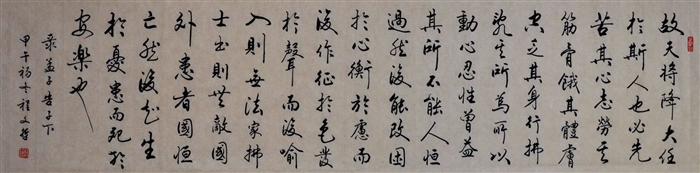 故天将降大任
於斯人也必先
苦其心志劳其
筋骨饿其體膚
空乏其身行拂
乱其所为所以
動心忍性曾益
其所不能人恒
過然後能改困
於心衡於慮而
後作征於色發
於聲而後喻
入則無法家拂
士出則無敵國
外患者國恒
亡然後知生
於憂患而死於
安樂也
录孟子告子下
甲午初冬程文